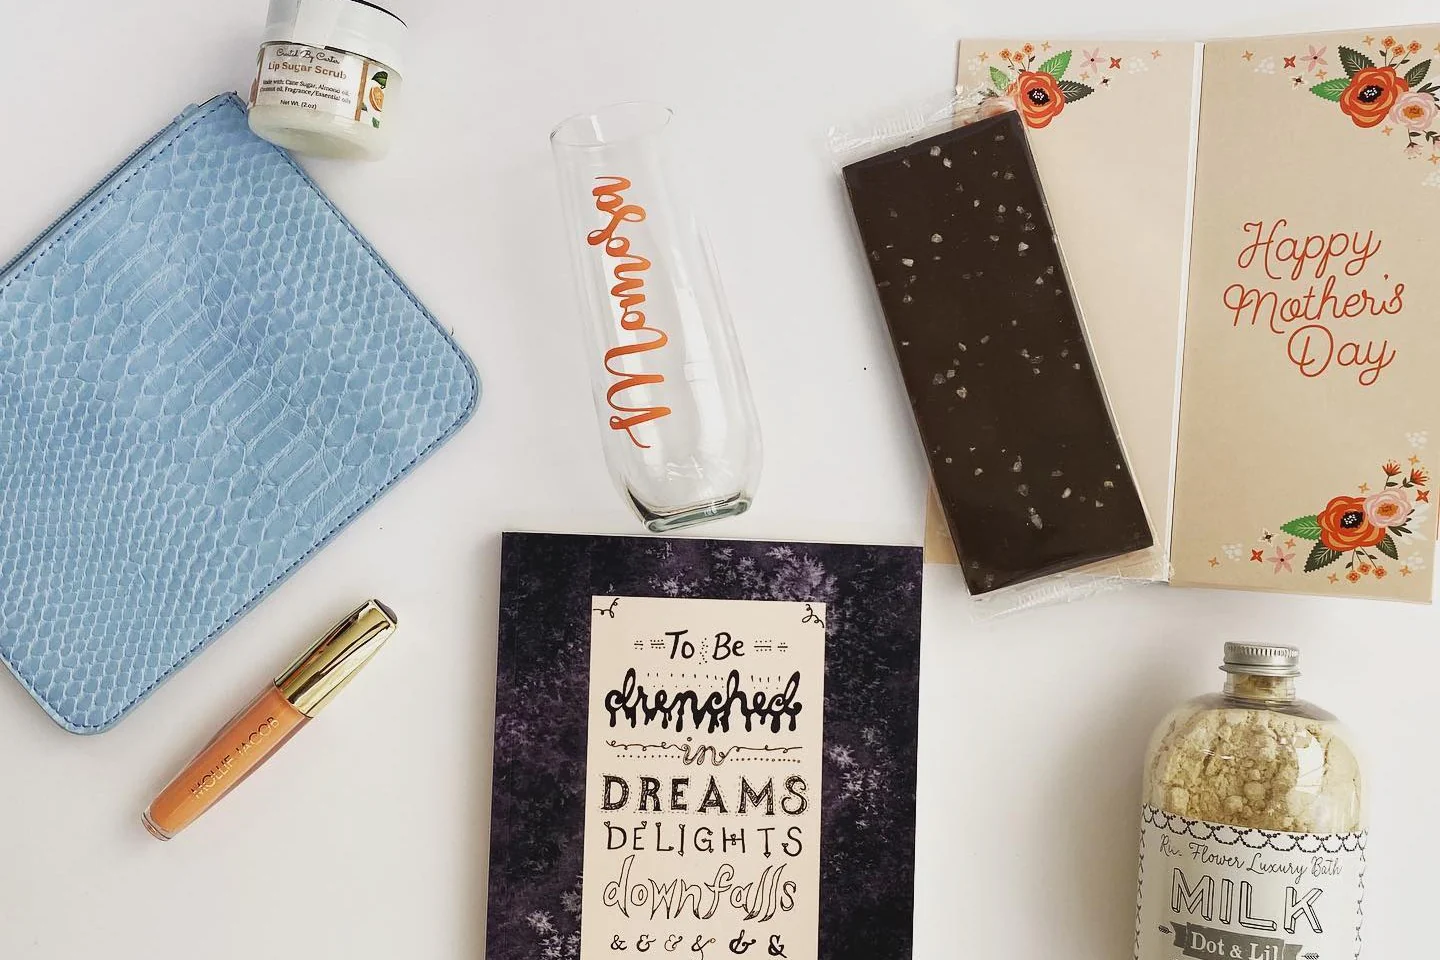 Created By Carter
Lip Sugar Scrub
Made with: Cane Sugar, Almond oil,
Coconut oil, Fragrance/Essential oils
Net Wt. (2oz)
Mamosa
Happy
Mother's
Day
MOLLIE JACOB
To Be
drenched
in
DREAMS
DELIGHTS
downfalls
& & & & & &
Flower Luxury Bath
MILK
Dot & Lil